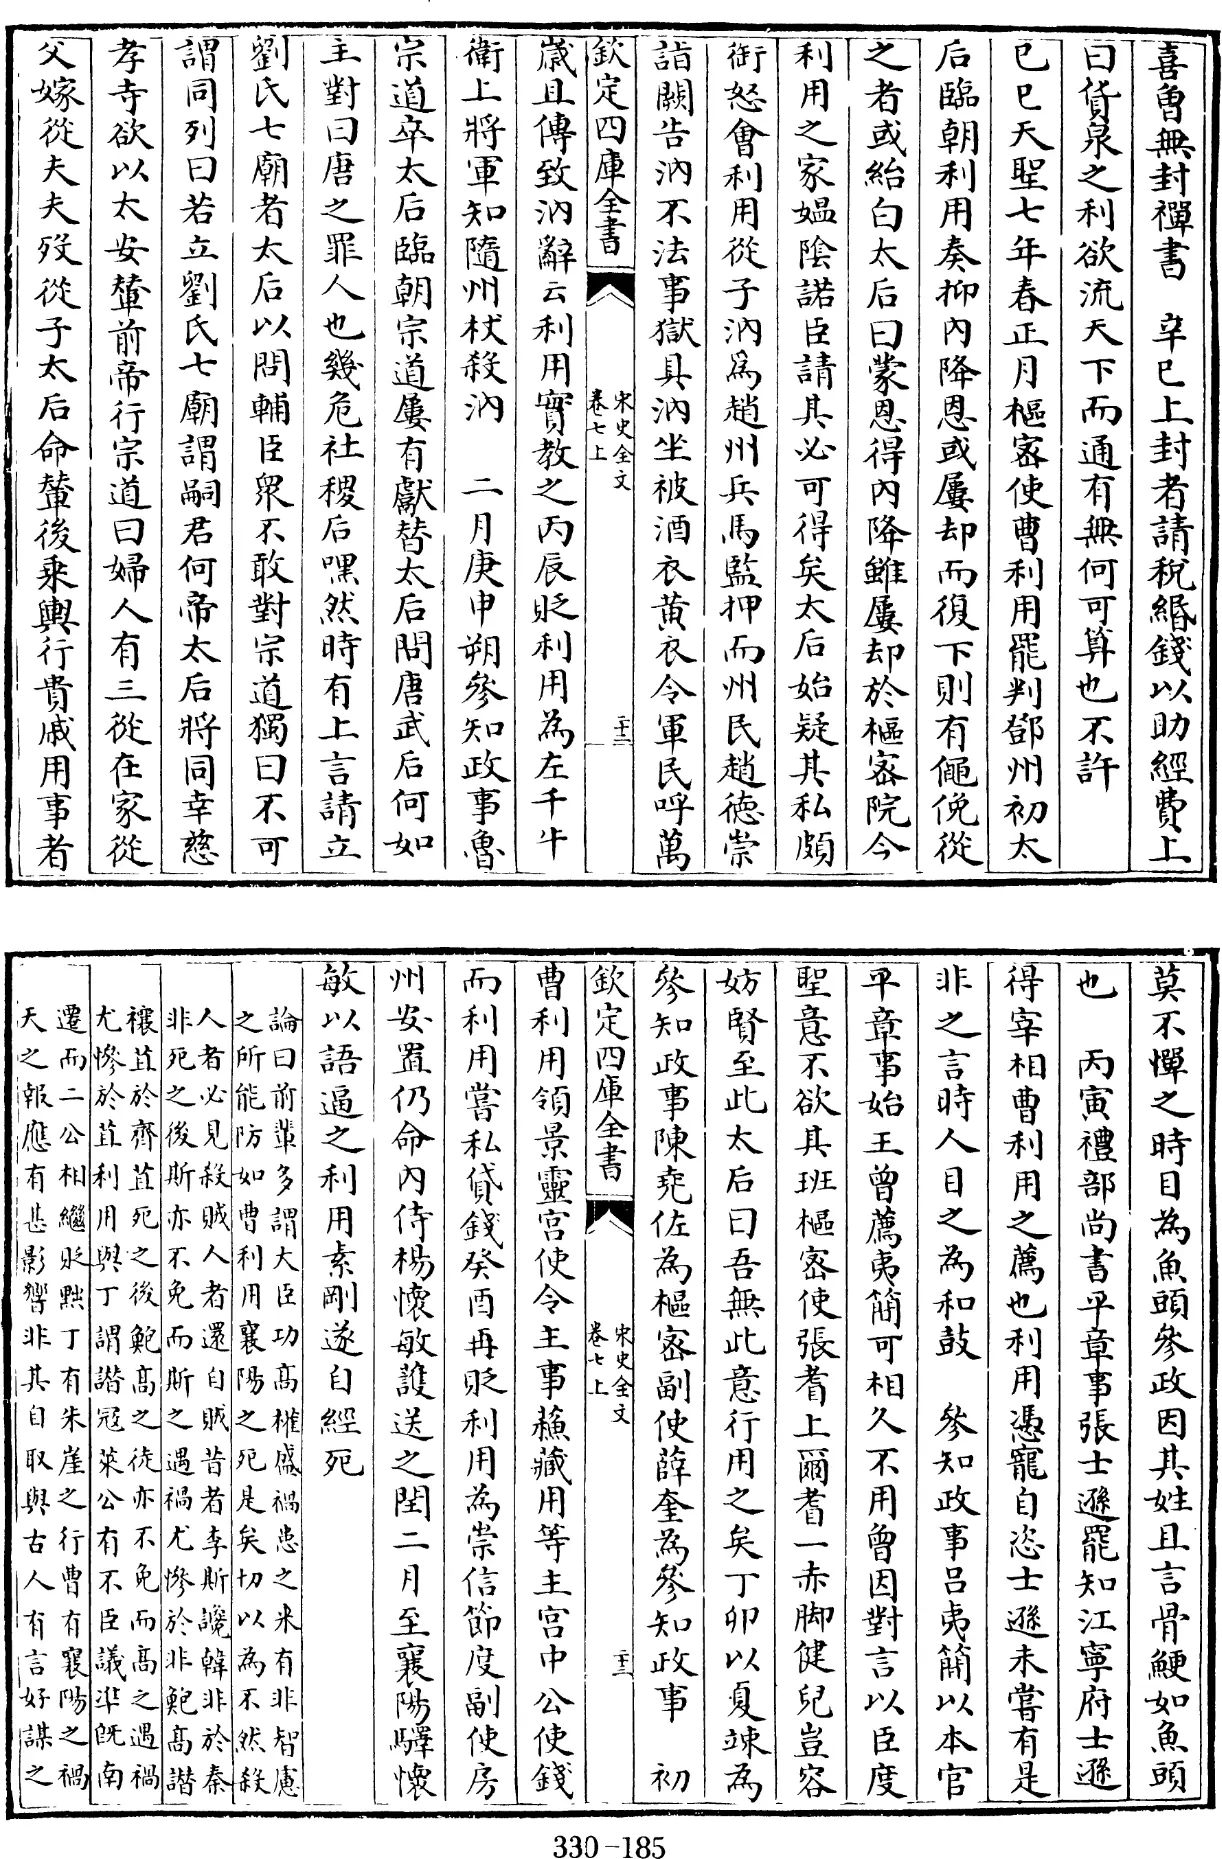 喜曾無封禪書　辛巳上封者請稅緡錢以助經費上
曰貨泉之利欲流天下而通有無何可算也不許
己巳天聖七年春正月樞密使曹利用罷判鄧州初太
后臨朝利用奏抑內降恩或屢却而復下則有僶俛從
之者或紿白太后曰蒙恩得內降雖屢却於樞密院今
利用之家媼陰諾臣請其必可得矣太后始疑其私頗
銜怒會利用從子汭爲趙州兵馬監押而州民趙德崇
詣闕告汭不法事獄具汭坐被酒衣黃衣令軍民呼萬
欽定四庫全書
宋史全文
卷七上
二十二
歲且傳致汭辭云利用實教之丙辰貶利用為左千牛
衛上將軍知隨州杖殺汭　二月庚申朔參知政事魯
宗道卒太后臨朝宗道屢有獻替太后問唐武后何如
主對曰唐之罪人也幾危社稷后嘿然時有上言請立
劉氏七廟者太后以問輔臣眾不敢對宗道獨曰不可
謂同列曰若立劉氏七廟謂嗣君何帝太后將同幸慈
孝寺欲以太安輦前帝行宗道曰婦人有三從在家從
父嫁從夫夫歿從子太后命輦後乘輿行貴戚用事者
莫不憚之時目為魚頭參政因其姓且言骨鯁如魚頭
也　丙寅禮部尚書平章事張士遜罷知江寧府士遜
得宰相曹利用之薦也利用憑寵自恣士遜未嘗有是
非之言時人目之為和鼓　參知政事呂夷簡以本官
平章事始王曾薦夷簡可相久不用曾因對言以臣度
聖意不欲其班樞密使張耆上爾耆一赤脚健兒豈容
妨賢至此太后曰吾無此意行用之矣丁卯以夏竦為
參知政事陳堯佐為樞密副使薛奎為參知政事　初
欽定四庫全書
宋史全文
卷七上
二十三
曹利用領景靈宮使令主事蘇藏用等主宮中公使錢
而利用嘗私貸錢癸酉再貶利用為崇信節度副使房
州安置仍命內侍楊懷敏護送之閏二月至襄陽驛懷
敏以語逼之利用素剛遂自經死
論曰前輩多謂大臣功高權盛禍患之來有非智慮
之所能防如曹利用襄陽之死是矣切以為不然殺
人者必見殺賊人者還自賊昔者李斯讒韓非於秦
非死之後斯亦不免而斯之遇禍尤慘於非鮑高譖
穰苴於齊苴死之後鮑高之徒亦不免而高之遇禍
尤慘於苴利用與丁謂譖寇萊公有不臣議準旣南
遷而二公相繼貶黜丁有朱崖之行曹有襄陽之禍
天之報應有甚影響非其自取與古人有言好謀之
330-185